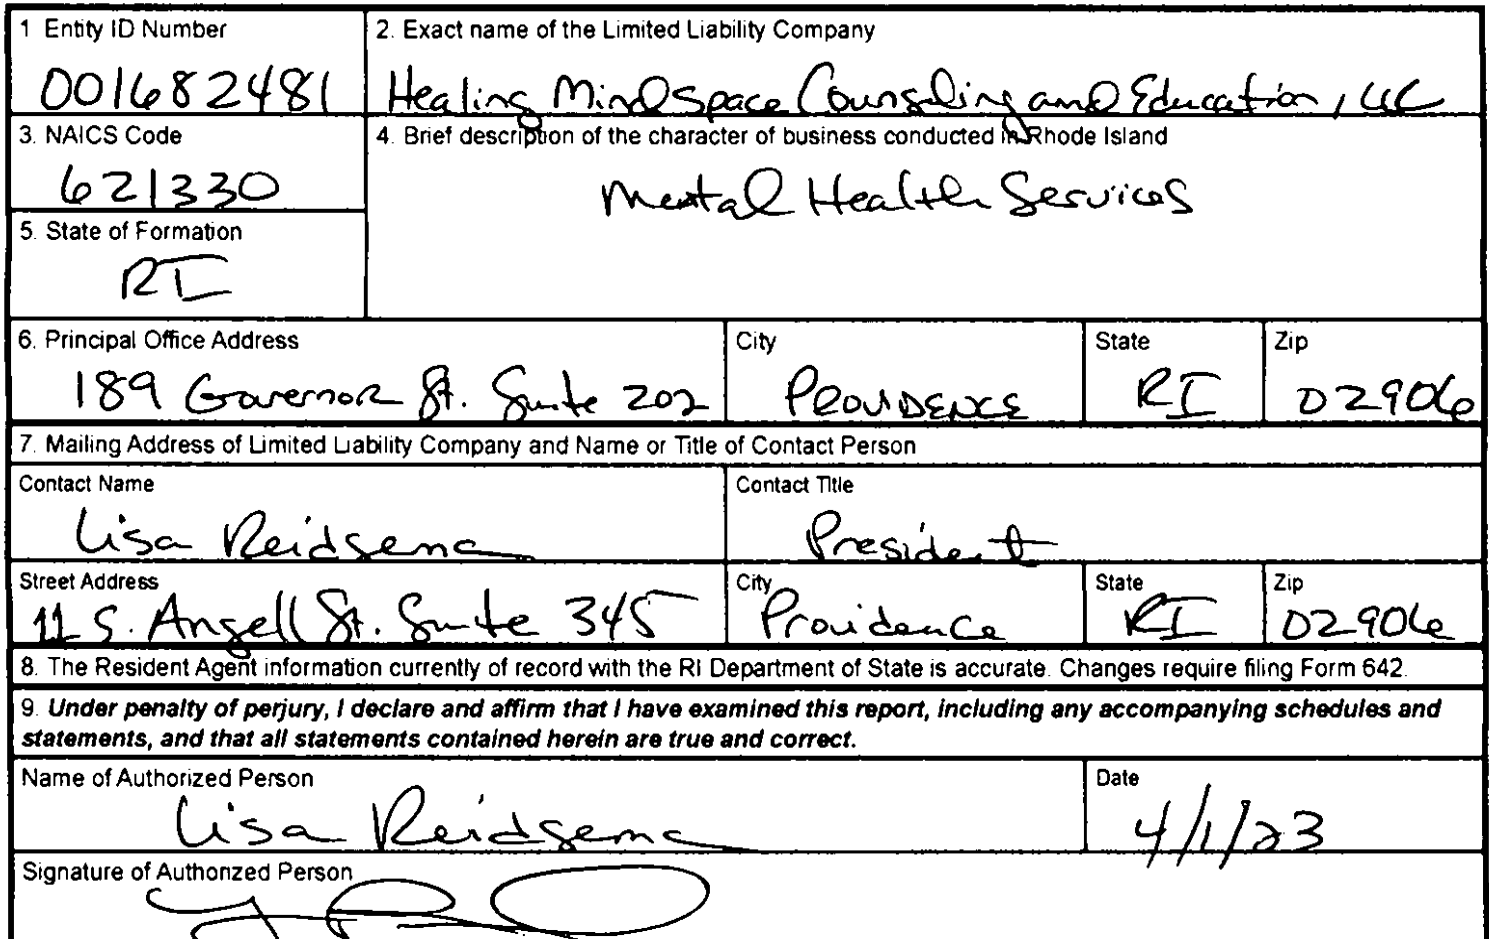 1 Entity ID Number
2. Exact name of the Limited Liability Company
001682481
Healing MindSpace Counseling and Education, LLC
3. NAICS Code
4. Brief description of the character of business conducted in Rhode Island
621330
Mental Health Services
5. State of Formation
RI
6. Principal Office Address
City
State
Zip
189 Governor St. Suite 202
PROVIDENCE
RI
02906
7. Mailing Address of Limited Liability Company and Name or Title of Contact Person
Contact Name
Contact Title
Lisa Reidsema
President
Street Address
City
State
Zip
11 S. Angell St. Suite 345
Providence
RI
02906
8. The Resident Agent information currently of record with the RI Department of State is accurate. Changes require filing Form 642.
9. Under penalty of perjury, I declare and affirm that I have examined this report, including any accompanying schedules and
statements, and that all statements contained herein are true and correct.
Name of Authorized Person
Date
Lisa Reidsema
4/1/23
Signature of Authorized Person